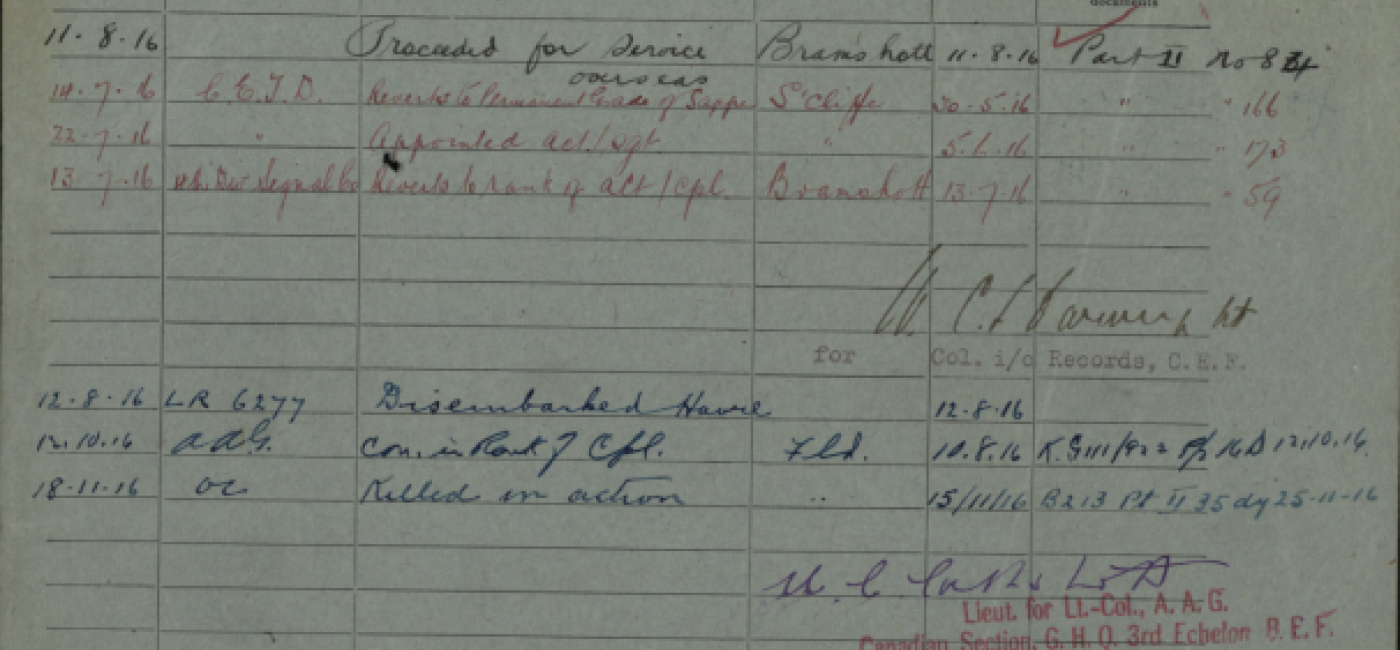 documents
11.8.16 Proceeded for Service overseas Bramshott 11.8.16 Part II no 84
14.7.16 C.E.T.D. Reverts to Permanent Grade of Sapper S'cliffe 30.5.16 " " 166
22.7.16 " Appointed act/Sgt " 5.6.16 " " 173
13.7.16 Div Signal Co Reverts to rank of act/cpl. Bramshott 13.7.16 " " 59
for Col. i/c Records, C.E.F.
12.8.16 LR 6277 Disembarked Havre 12.8.16
12.10.16 aag. Con. in Rank of Cpl. Fld. 10.8.16 12.10.16.
18-11-16 OC Killed in action .. 15/11/16 B213 Pt II 35 25-11-16
Lieut. for Lt.-Col., A. A. G.
Canadian Section, G. H. Q. 3rd Echelon B. E. F.